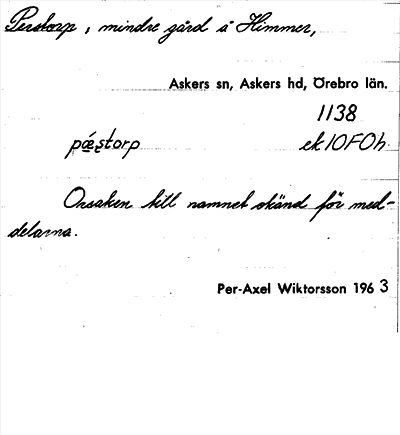 Perstorp, mindre gård å Himmer,
Askers sn, Askers hd, Örebro län.
1138
pǽştorp ek 10FOh.
Orsaken till namnet okänd för med-
delarna.
Per-Axel Wiktorsson 1963